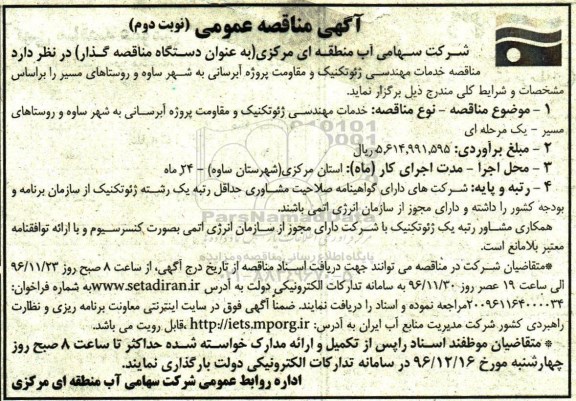 آگهی مناقصه عمومی (نوبت دوم)
شرکت سهامی آب منطقه ای مرکزی(به عنوان دستگاه مناقصه گذار) در نظر دارد
مناقصه خدمات مهندسی ژئوتکنیک و مقاومت پروژه آبرسانی به شهر ساوه و روستاهای مسیر را براساس
مشخصات و شرایط کلی مندرج ذیل برگزار نماید.
۱ - موضوع مناقصه - نوع مناقصه: خدمات مهندسی ژئوتکنیک و مقاومت پروژه آبرسانی به شهر ساوه و روستاهای
مسیر - یک مرحله ای
۲ - مبلغ برآوردی: ۵,۶۱۴,۹۹۱,۵۹۵ ریال
۳ - محل اجرا - مدت اجرای کار (ماه): استان مرکزی(شهرستان ساوه) - ۲۴ ماه
۴ - رتبه و پایه: شرکت های دارای گواهینامه صلاحیت مشاوری حداقل رتبه یک رشته ژئوتکنیک از سازمان برنامه و
بودجه کشور را داشته و دارای مجوز از سازمان انرژی اتمی باشند.
همکاری مشاور رتبه یک ژئوتکنیک با شرکت دارای مجوز از سازمان انرژی اتمی بصورت کنسرسیوم و یا ارائه توافقنامه
معتبر بلامانع است.
*متقاضیان شرکت در مناقصه می توانند جهت دریافت اسناد مناقصه از تاریخ درج آگهی، از ساعت ۸ صبح روز ۹۶/۱۱/۲۳
الی ساعت ۱۹ عصر روز ۹۶/۱۱/۳۰ به سامانه تدارکات الکترونیکی دولت به آدرس www.setadiran.ir به شماره فراخوان:
۲۰۰۹۶۱۱۶۴۰۰۰۰۳۴ مراجعه نموده و اسناد را دریافت نمایند. ضمناً آگهی فوق در سایت اینترنتی معاونت برنامه ریزی و نظارت
راهبردی کشور شرکت مدیریت منابع آب ایران به آدرس: http://iets.mporg.ir ،قابل رویت می باشد.
* متقاضیان موظفند اسناد را پس از تکمیل و ارائه مدارک خواسته شده حداکثر تا ساعت ۸ صبح روز
چهارشنبه مورخ ۹۶/۱۲/۱۶ در سامانه تدارکات الکترونیکی دولت بارگذاری نمایند.
اداره روابط عمومی شرکت سهامی آب منطقه ای مرکزی
ParsNamadData